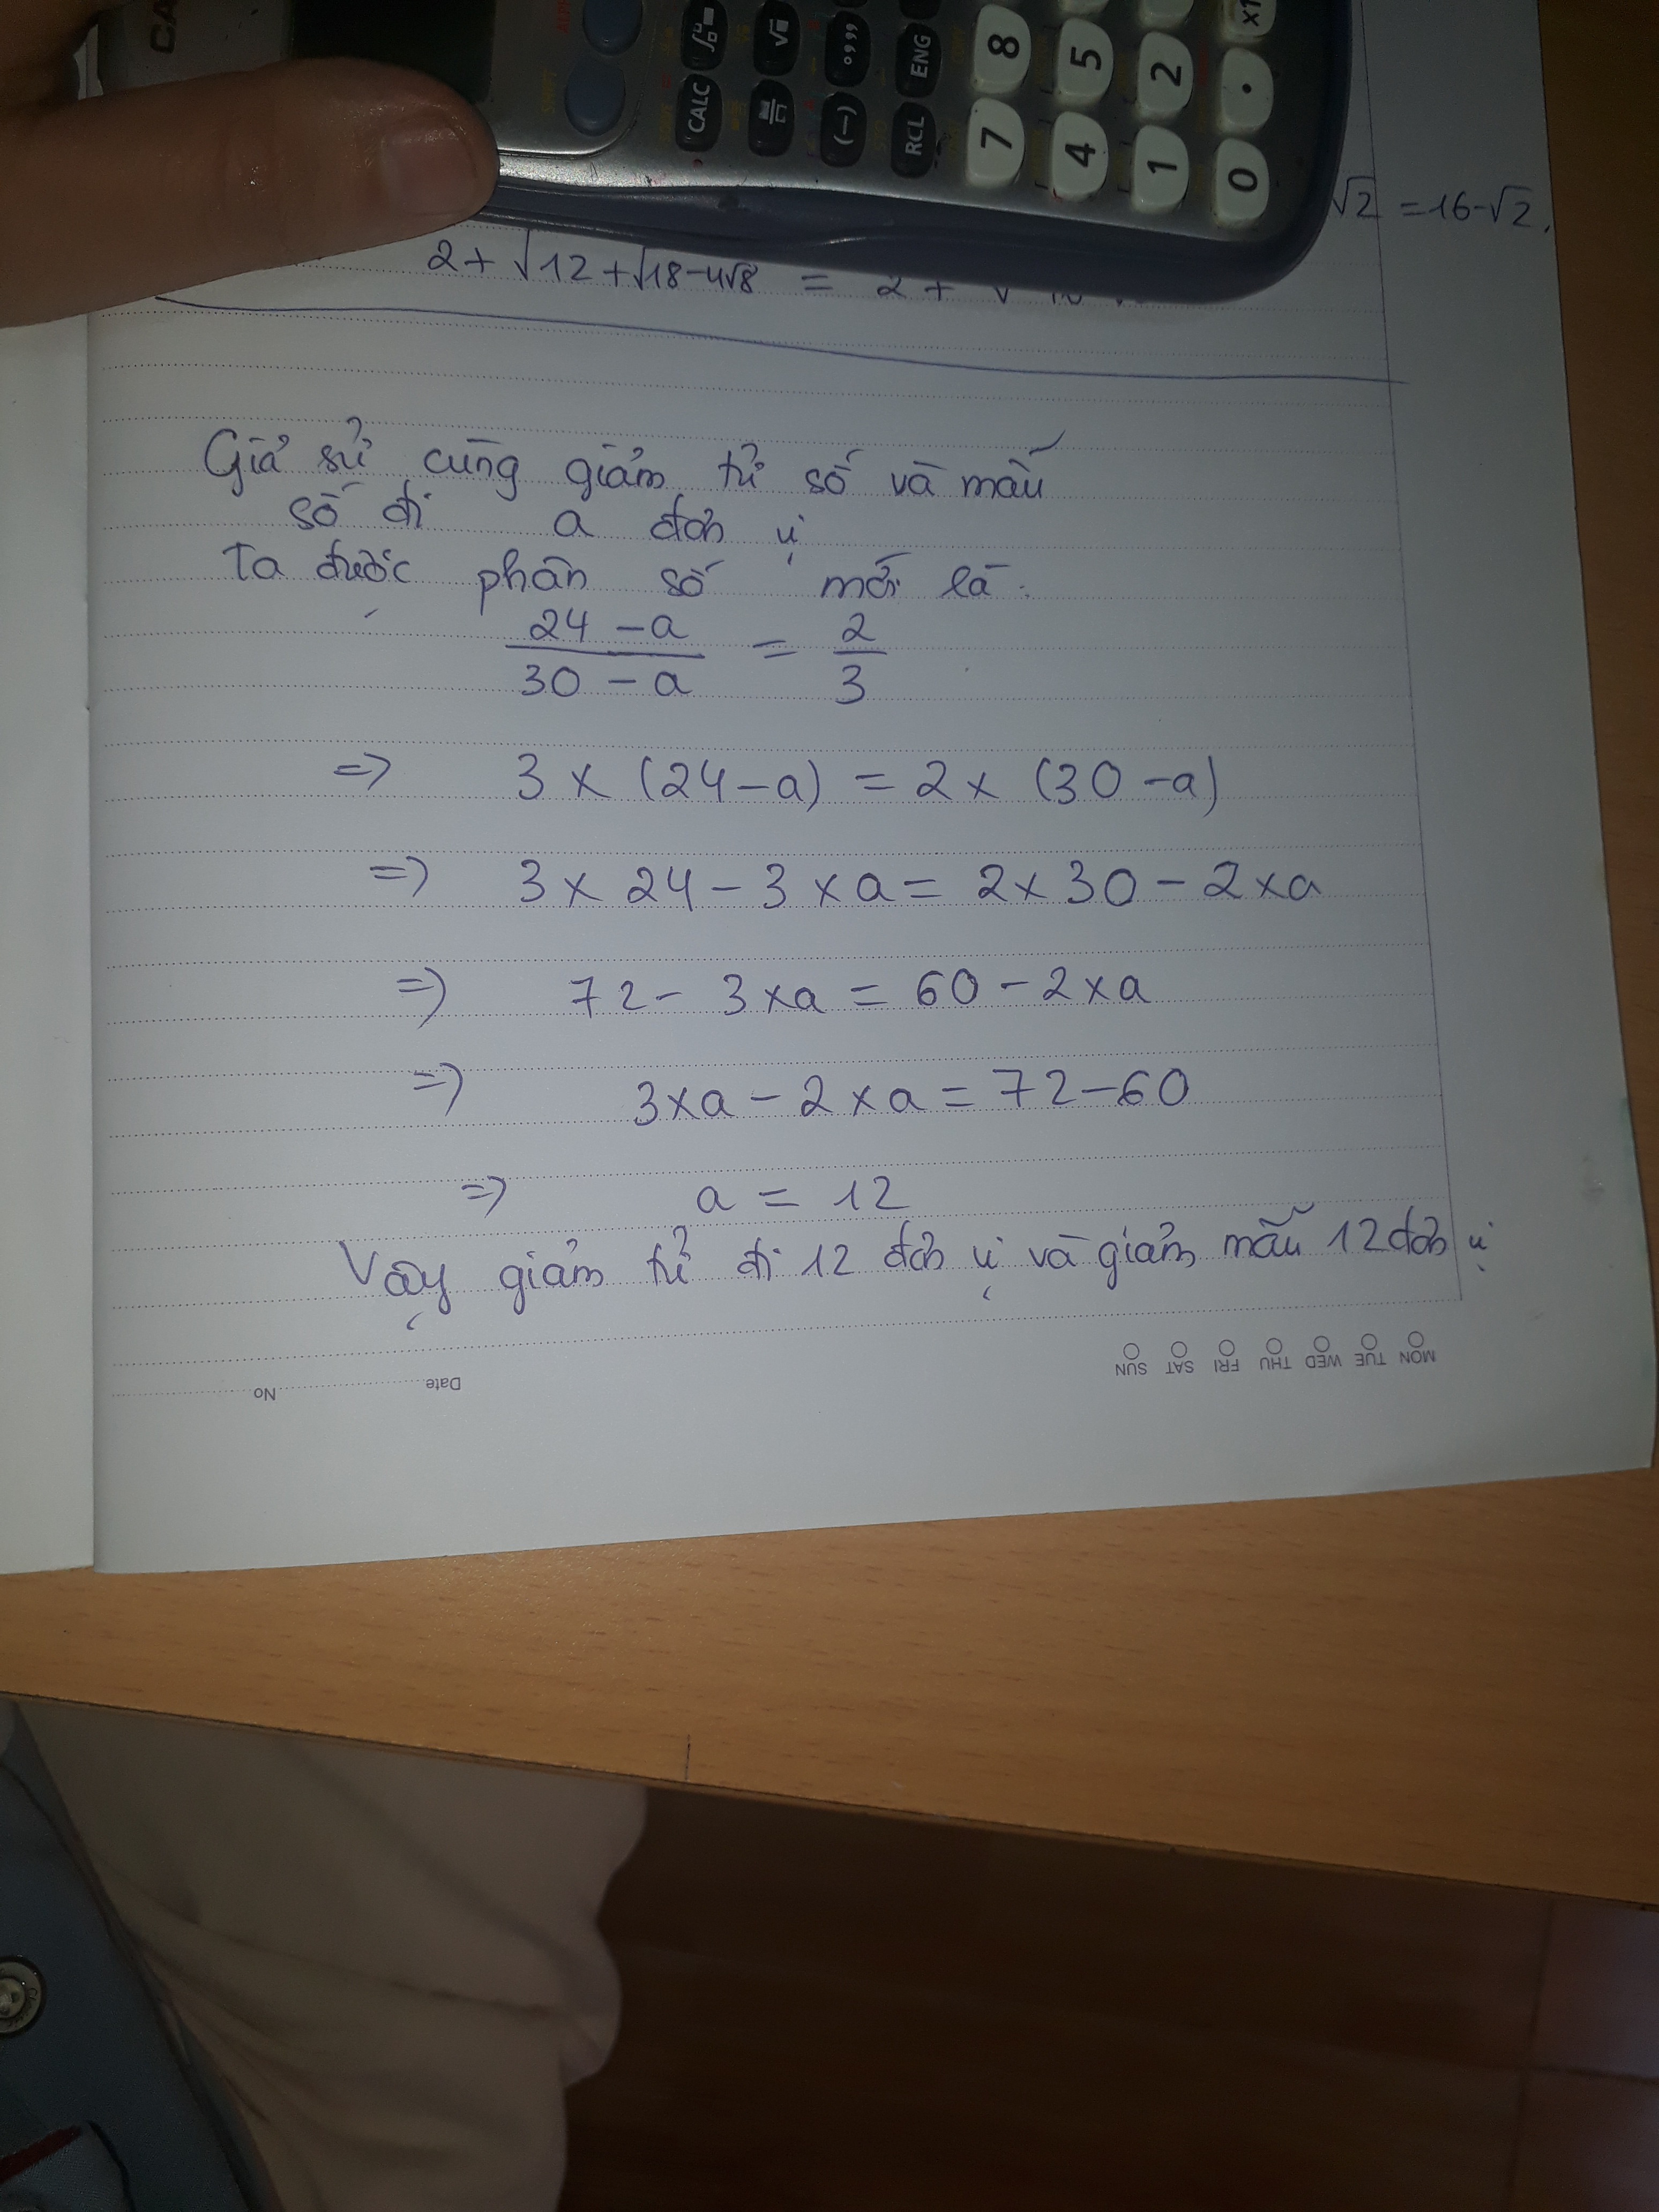 CA
SHIFT
CALC
(−)
RCL
ENG
7 8
4 5
1 2
0 •
√2 = 16-√2.
2 + √12 + √18-4√8 = 2 +
Giả sử cùng giảm tử số và mẫu
số đi a đơn vị
Ta được phân số mới là:
24 - a / 30 - a = 2 / 3
=> 3 x (24 - a) = 2 x (30 - a)
=> 3 x 24 - 3 x a = 2 x 30 - 2 x a
=> 72 - 3 x a = 60 - 2 x a
=> 3 x a - 2 x a = 72 - 60
=> a = 12
Vậy giảm tử đi 12 đơn vị và giảm mẫu 12 đơn vị
MON TUE WED THU FRI SAT SUN
Date No